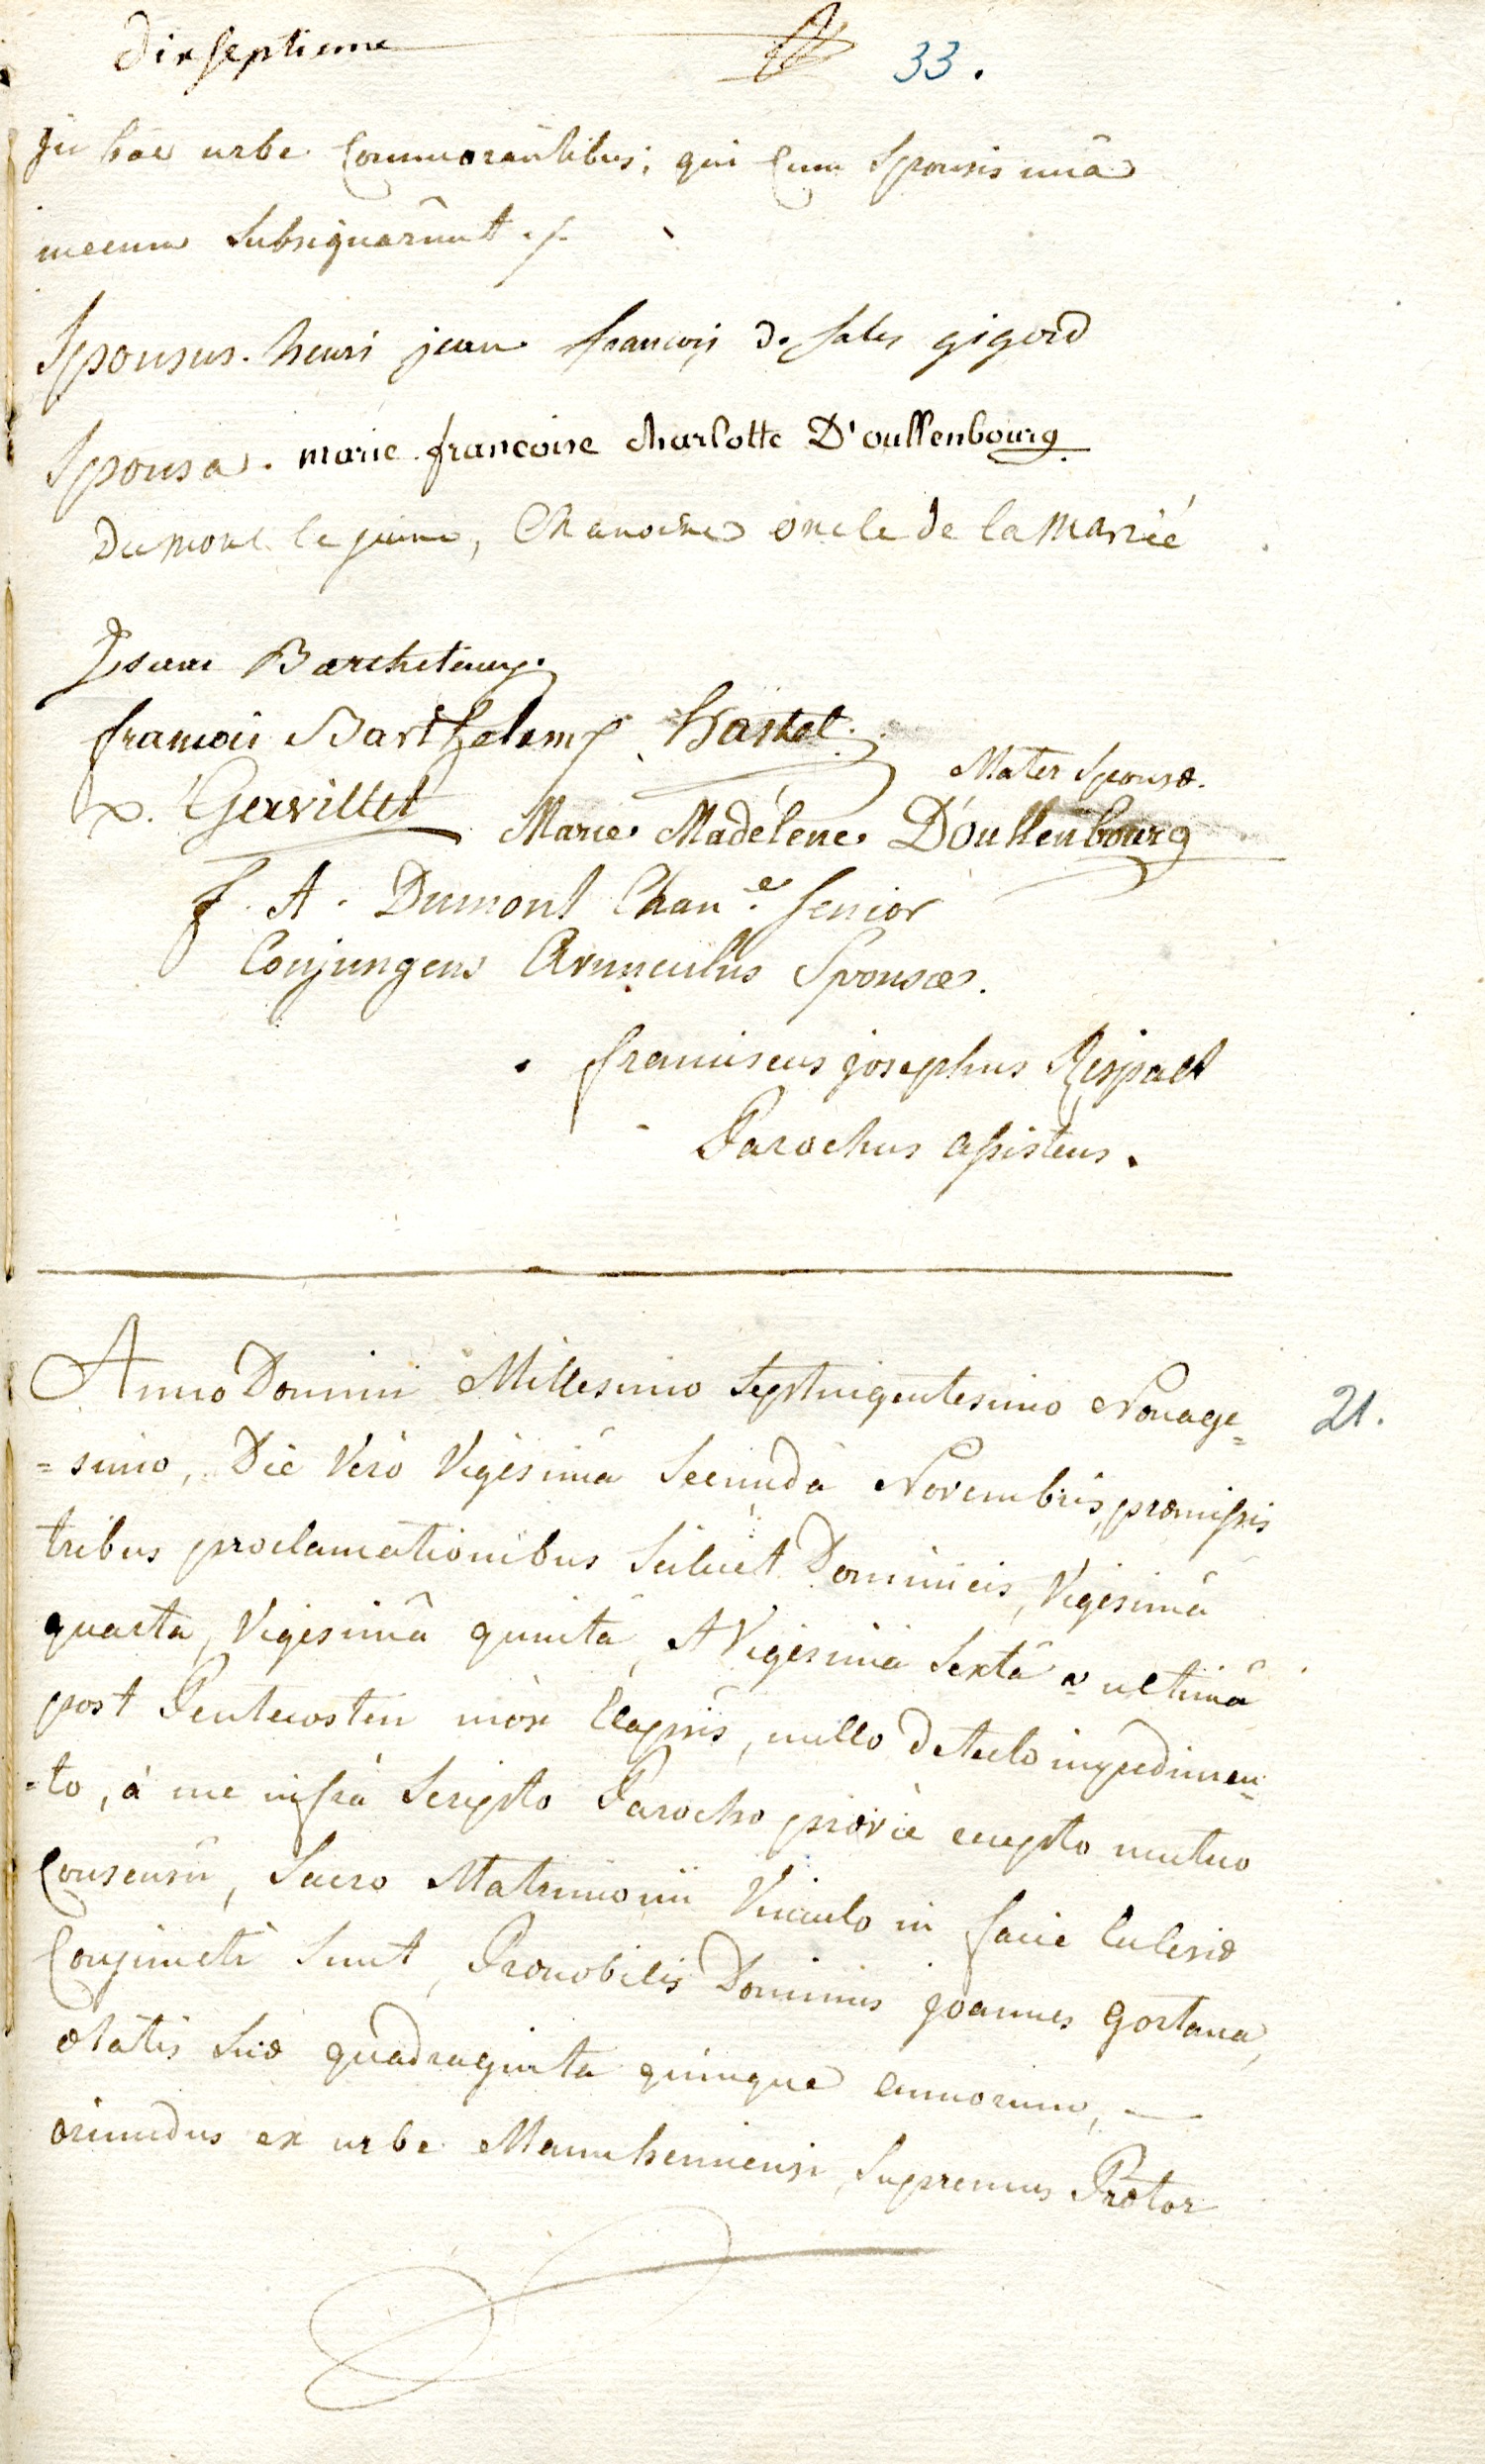 dixseptieme 33.
In hâc urbe Commorantibus; qui Cum Sponsis unâ
mecum Subsignârunt ./.
Sponsus. henri jean francois de sales gigord
Sponsa. marie francoise charlotte D'oullenbourg
Dumont le jeune, Chanoine oncle de la Marié
francois Barthelemy hastel.
x. Gervillet
Mater Sponsæ.
Marie Madélene D'Oullenbourg
F. A. Dumont Chan.e Senior
Conjungens Avunculus Sponsæ.
franciscus josephus Rispalt
Parochus assistens.
Anno Domini Millesimo Septuigentesimo Nonage= 21.
=simo, Die Verò Vigesimâ Secundâ Novembris, præmissis
tribus proclamationibus Scilicet Dominicis, Vigesimâ
quartâ, Vigesimâ quintâ, et Vigesimâ Sextâ & ultimâ
post Pentecosten mòx Elapsis, nullo detecto impedimen=
=to, à me infrà Scripto Parocho præviè accepto mutuo
Consensû, Sacro Matrimonii Vinculo in facie Ecclesiæ
Conjuncti Sunt, Prænobilis Dominus joannes Gortana,
ætatis Suæ quadraginta quinque annorum, —
oriundus ex urbe Mannheimensi, Supremus Prætor